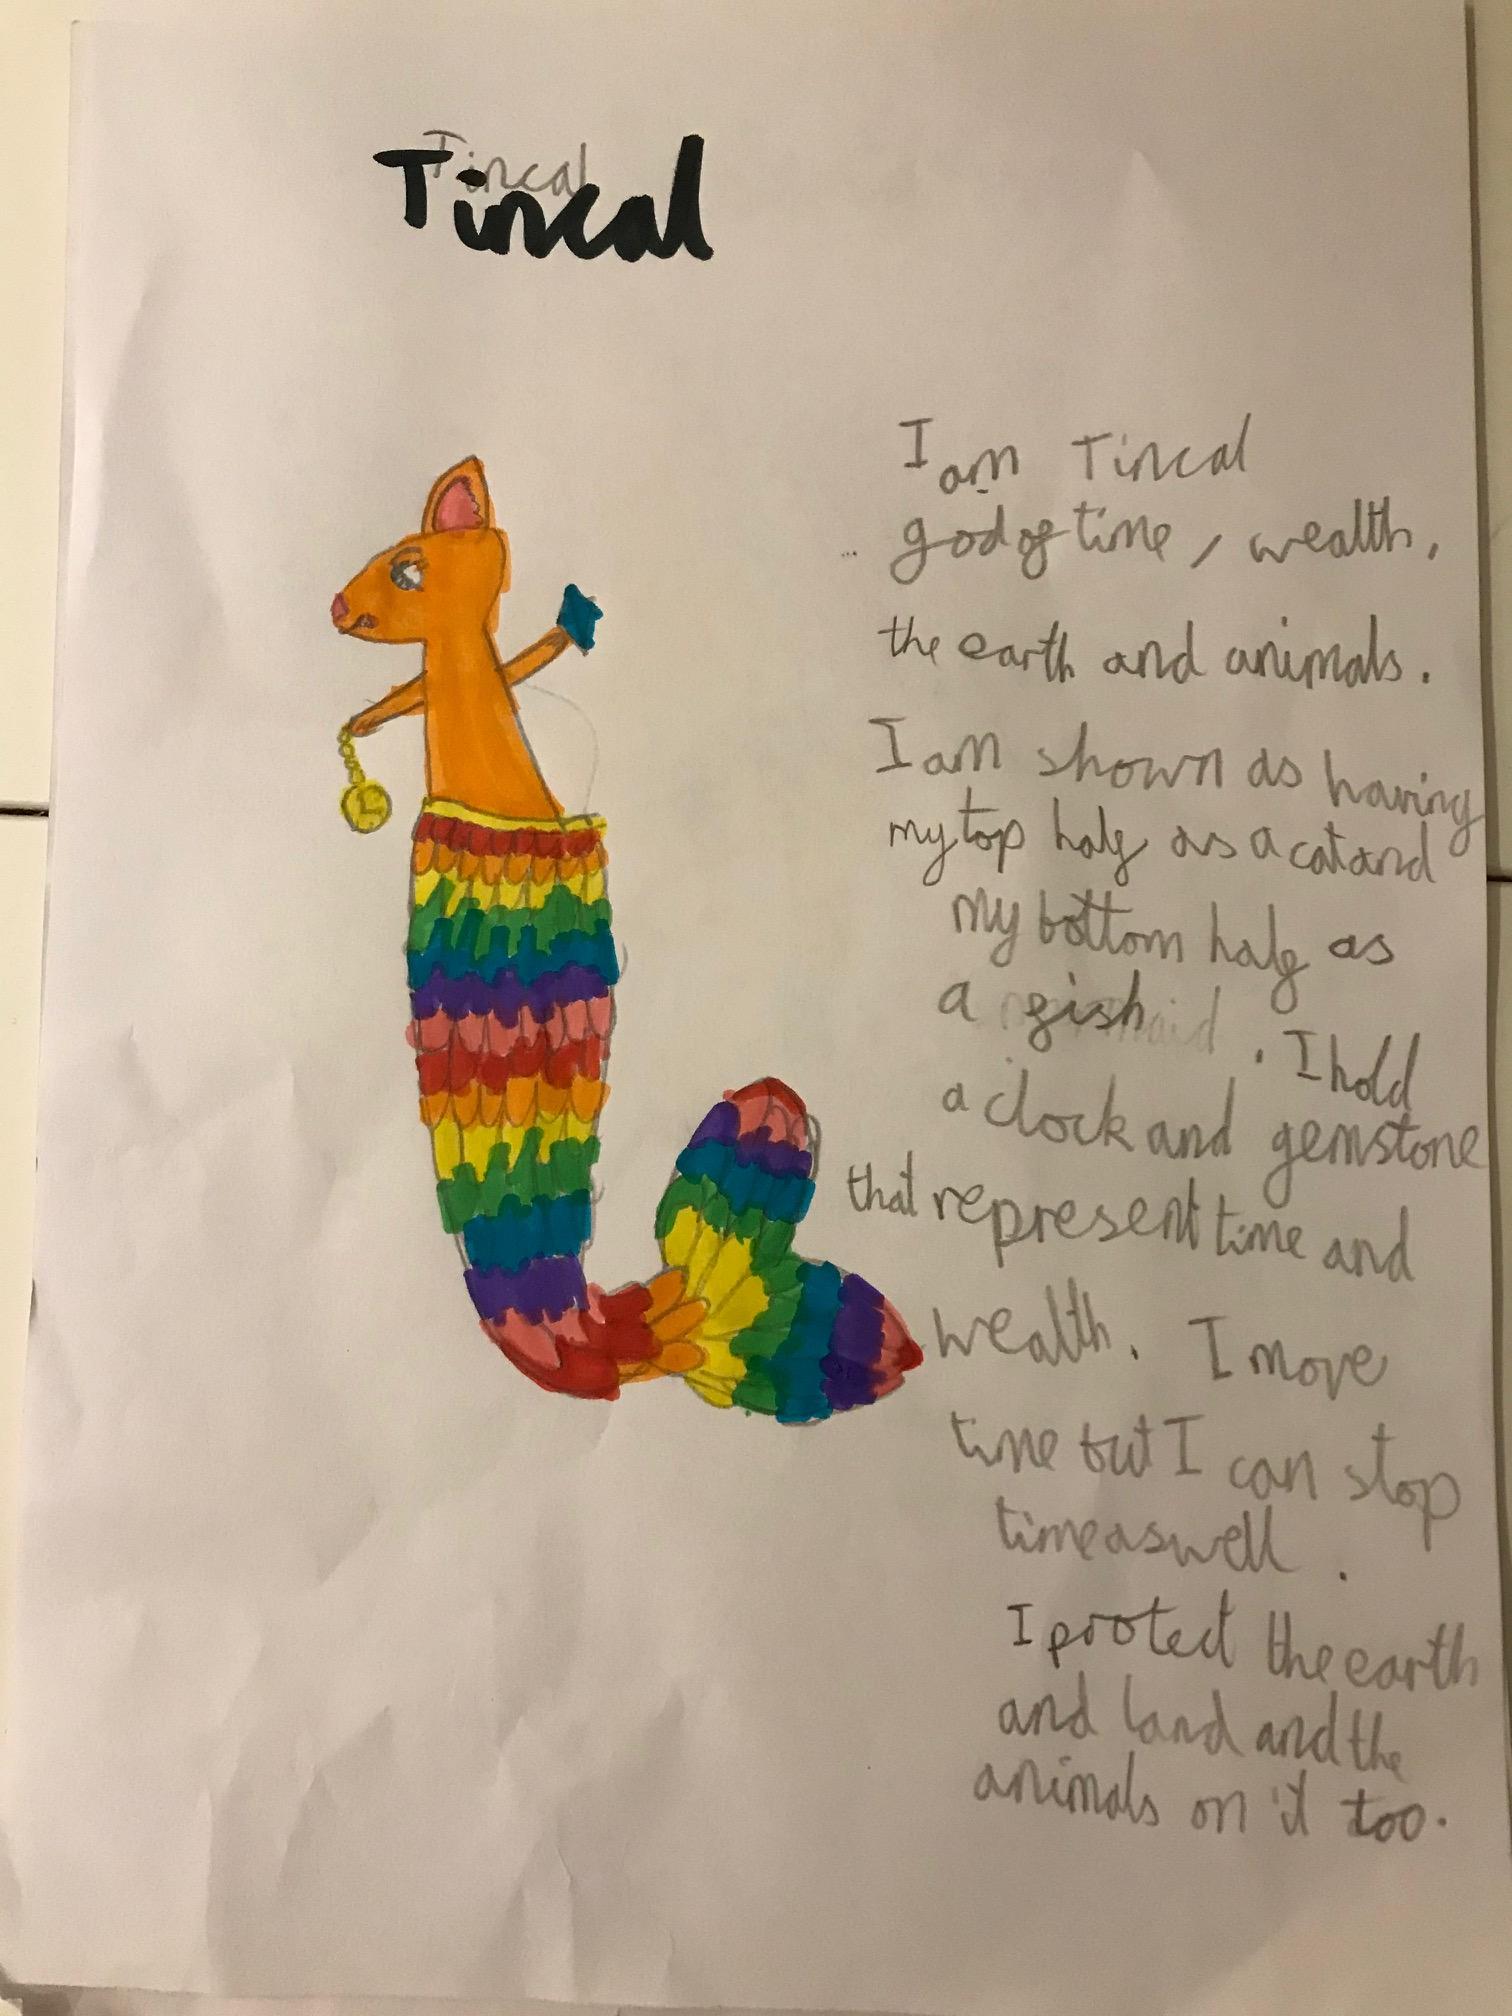 Tincal
Tincal
I am Tincal
god of time, wealth,
the earth and animals.
I am shown as having
my top half as a cat and
my bottom half as
a fish . I hold
a clock and gemstone
that represent time and
wealth. I move
time but I can stop
time as well .
I protect the earth
and land and the
animals on it too.